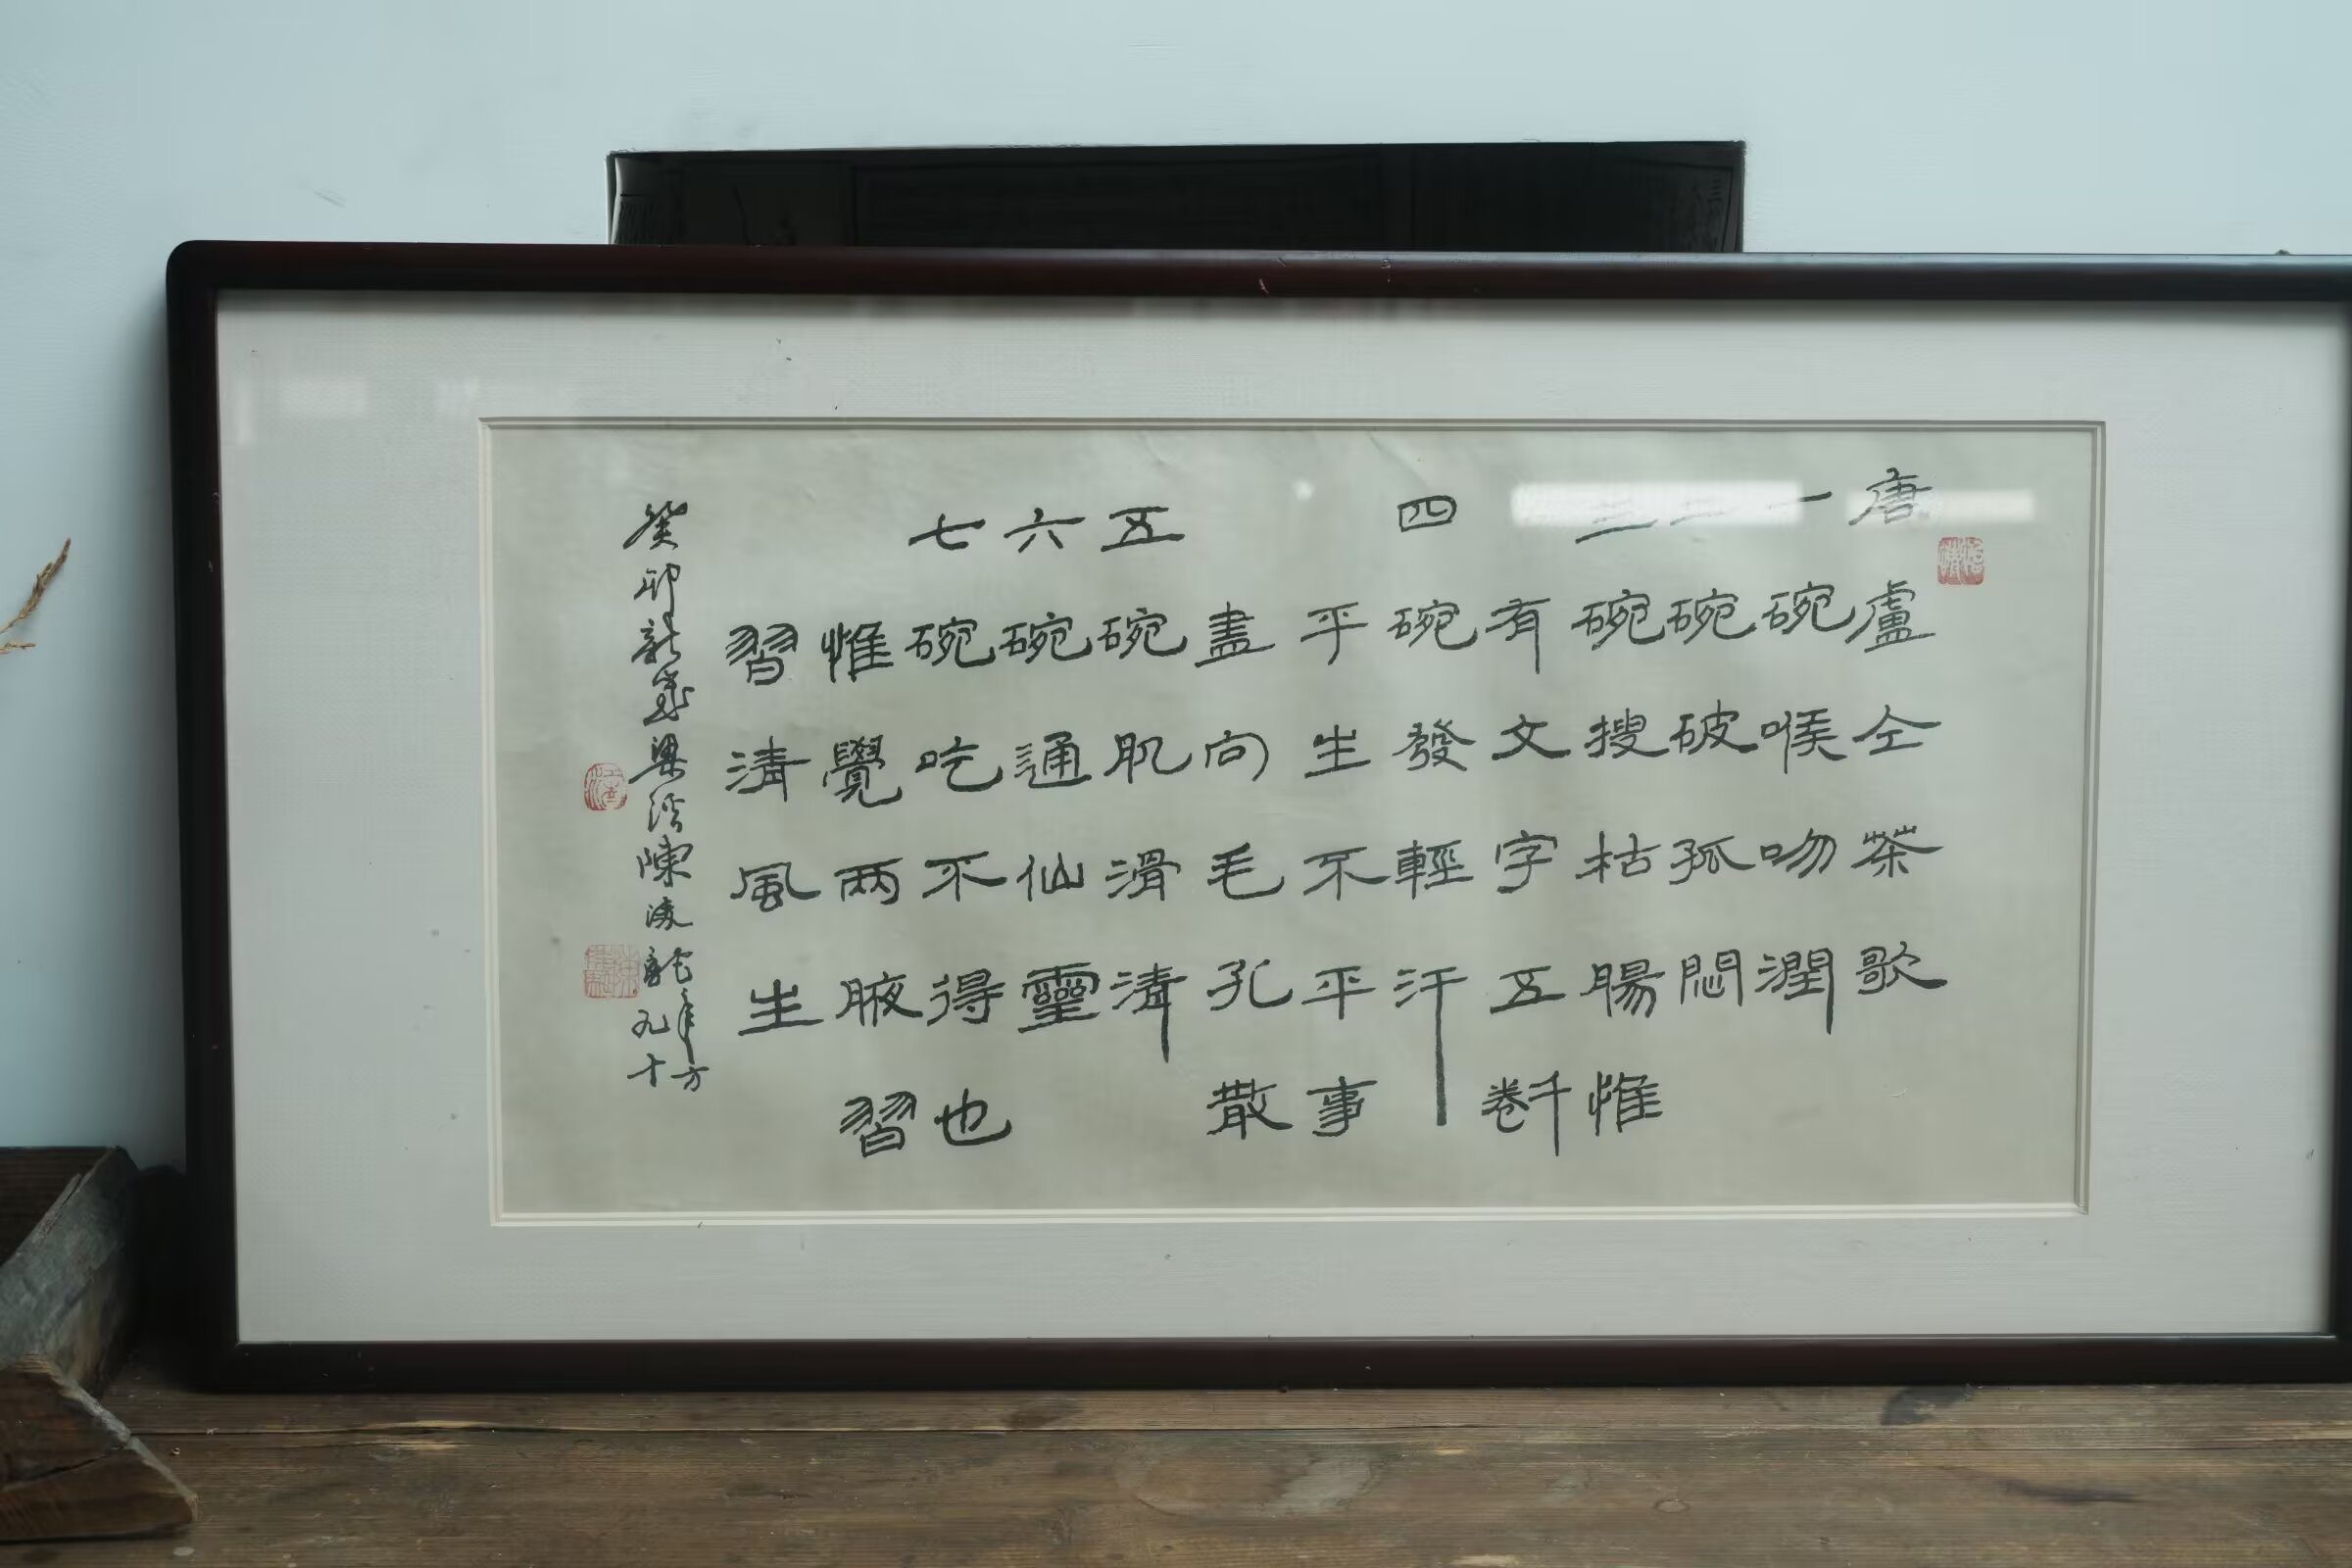 唐盧仝茶歌
一碗喉吻潤
二碗破孤悶
三碗搜枯腸惟
有文字五千卷
四碗發輕汗
平生不平事
盡向毛孔散
五碗肌滑清
六碗通仙靈
七碗吃不得也
惟覺两腋習
習清風生
癸卯新歲梁溪陳年方九十